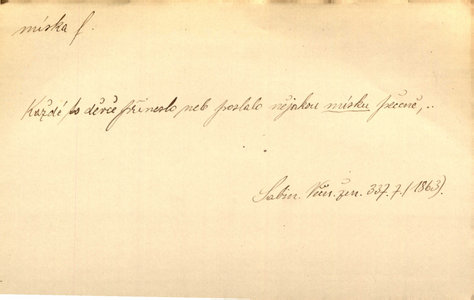 míska f.
Každé to děvče přineslo neb poslalo nějakou mísku pečeně,..
Sabin. Věn. žen. 337.7. (1863).